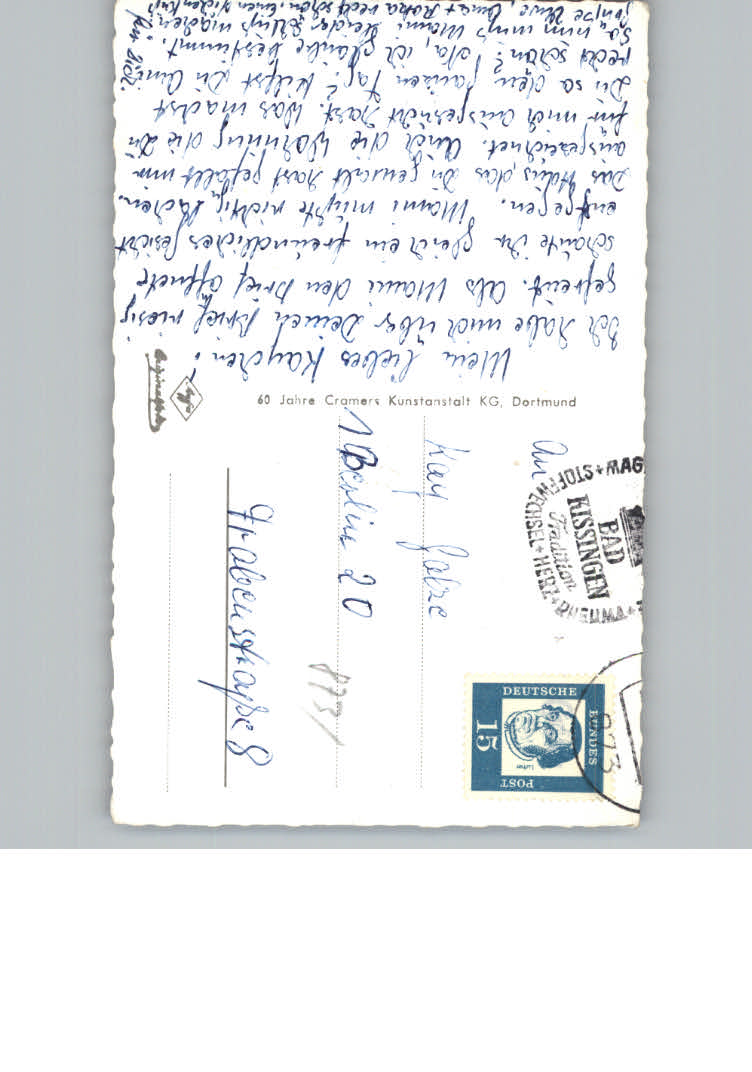 Mein liebes Kaychen!
Ich habe mich über Deinen Brief riesig
gefreut. Als Mami den Brief öffnete
schaute ihr gleich ein freundliches Gesicht
entgegen. Mami mußte richtig lachen.
Das Haus, das Du gemalt hast gefällt mir
ausgezeichnet. Auch die Wohnung die Du
für mich ausgesucht hast. Was machst
Du so den ganzen Tag? Hilfst Du Omi
recht schön? Na, ich glaube bestimmt.
So nun muß Mami leider Schluß machen.
Omi + Rolka recht schön. einen dicken Kuß
60 Jahre Cramers Kunstanstalt KG, Dortmund
Agfa
Originalfoto
An
Kay
1 Berlin 20
Grabenstraße 8
8731
STOFFWECHSEL + HERZ + RHEUMA +
BAD
KISSINGEN
Tradition
873
DEUTSCHE
BUNDES
POST
15
Luther